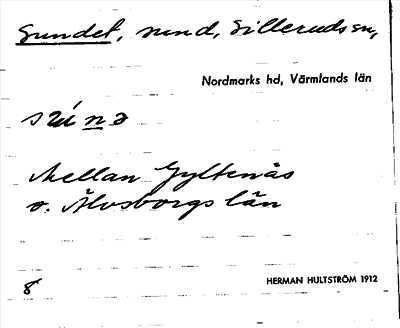 Sundet, sund, Silleruds sn,
Nordmarks hd, Värmlands län
Mellan Gyltenäs
o. Älvsborgs län
8
HERMAN HULTSTRÖM 1912